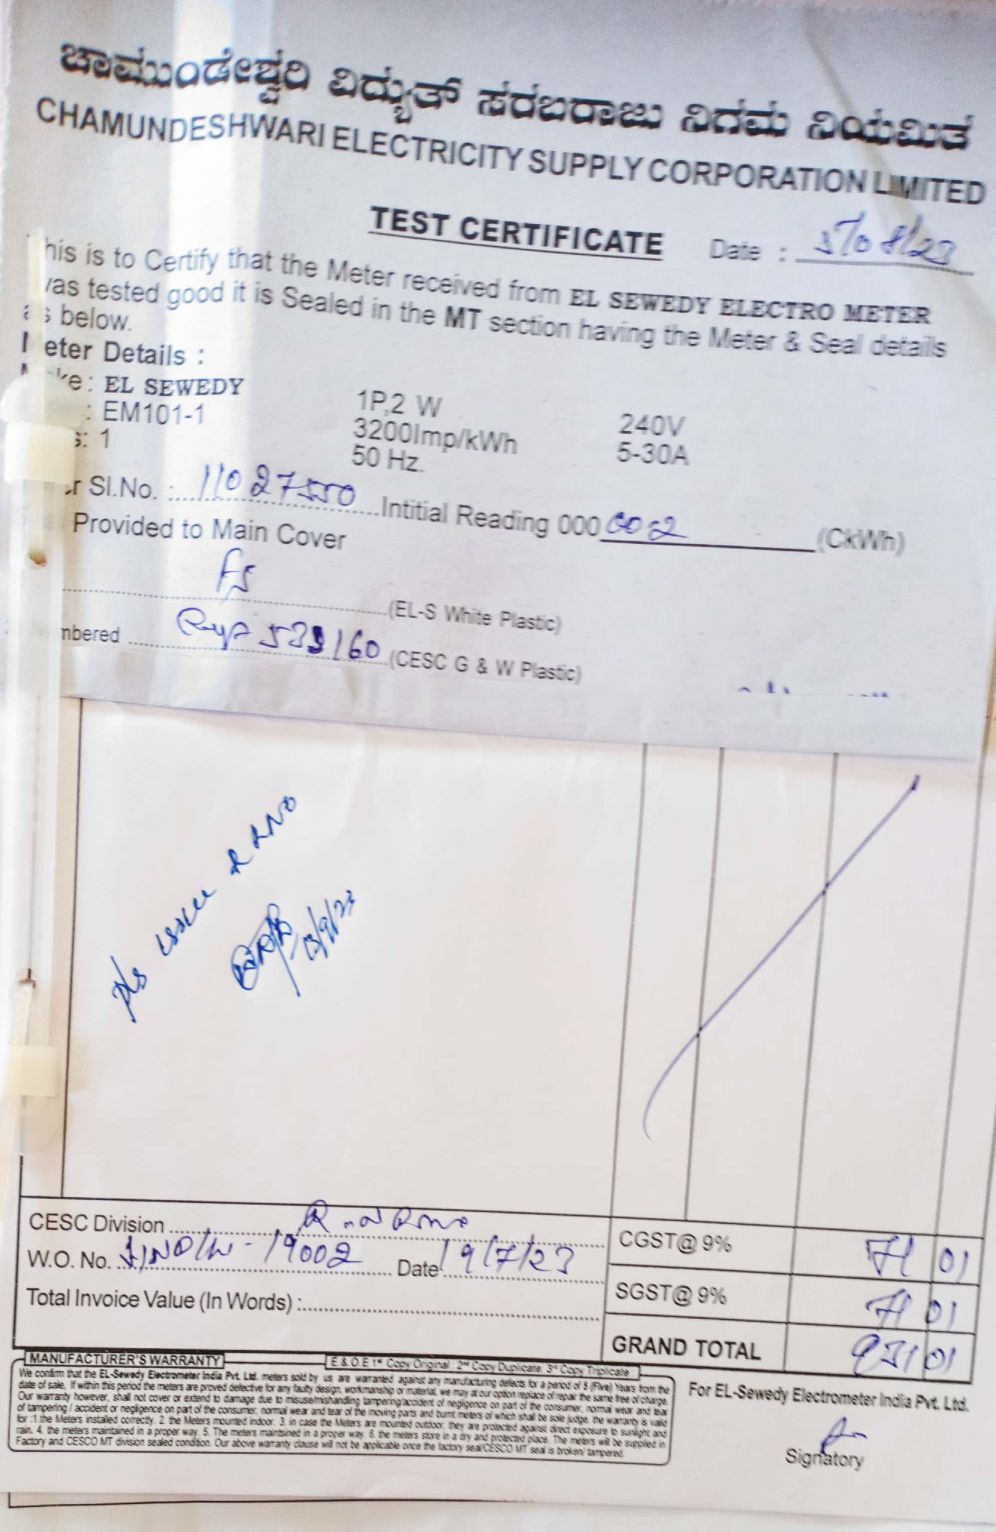 ಚಾಮುಂಡೇಶ್ವರಿ ವಿದ್ಯುತ್ ಸರಬರಾಜು ನಿಗಮ ನಿಯಮಿತ
CHAMUNDESHWARI ELECTRICITY SUPPLY CORPORATION LIMITED
TEST CERTIFICATE Date :
his is to Certify that the Meter received from EL SEWEDY ELECTRO METER
was tested good it is Sealed in the MT section having the Meter & Seal details
as below.
Meter Details :
EL SEWEDY 1P,2 W 240V
: EM101-1 3200Imp/kWh 5-30A
: 1 50 Hz.
Sl.No. : 11027550 Intitial Reading 000 002 (CkWh)
Provided to Main Cover
(EL-S White Plastic)
mbered 539160 (CESC G & W Plastic)
13/9/23
CESC Division
W.O. No. 19002 Date 19/7/23
Total Invoice Value (In Words) :
CGST@ 9% 71 01
SGST@ 9% 71 01
GRAND TOTAL 931 01
MANUFACTURER'S WARRANTY E.& O.E 1st Copy Original : 2nd Copy Duplicate: 3rd Copy Triplicate
We confirm that the EL-Sewedy Electrometer India Pvt. Ltd. meters sold by us are warranted against any manufacturing defects for a period of 5 (Five) Years from the
date of sale. If within this period the meters are proved defective for any faulty design, workmanship or material, we may at our option replace of repair the same free of charge.
Our warranty however, shall not cover or extend to damage due to misuse/mishandling tampering/accident of negligence on part of the consumer, normal wear and tear
of tampering / accident or negligence on part of the consumer, normal wear and tear of the moving parts and burnt meters of which shall be sole judge, the warranty is valid
for :1.the Meters installed correctly. 2. the Meters mounted indoor. 3. in case the Meters are mounted outdoor, they are protected against direct exposure to sunlight and
rain. 4. the meters maintained in a proper way. 5. The meters maintained in a proper way. 6. the meters store in a dry and protected place. The meters will be supplied in
Factory and CESCO MT division sealed condition. Our above warranty clause will not be applicable once the factory seal/CESCO MT seal is broken/ tampered.
For EL-Sewedy Electrometer India Pvt. Ltd.
Signatory